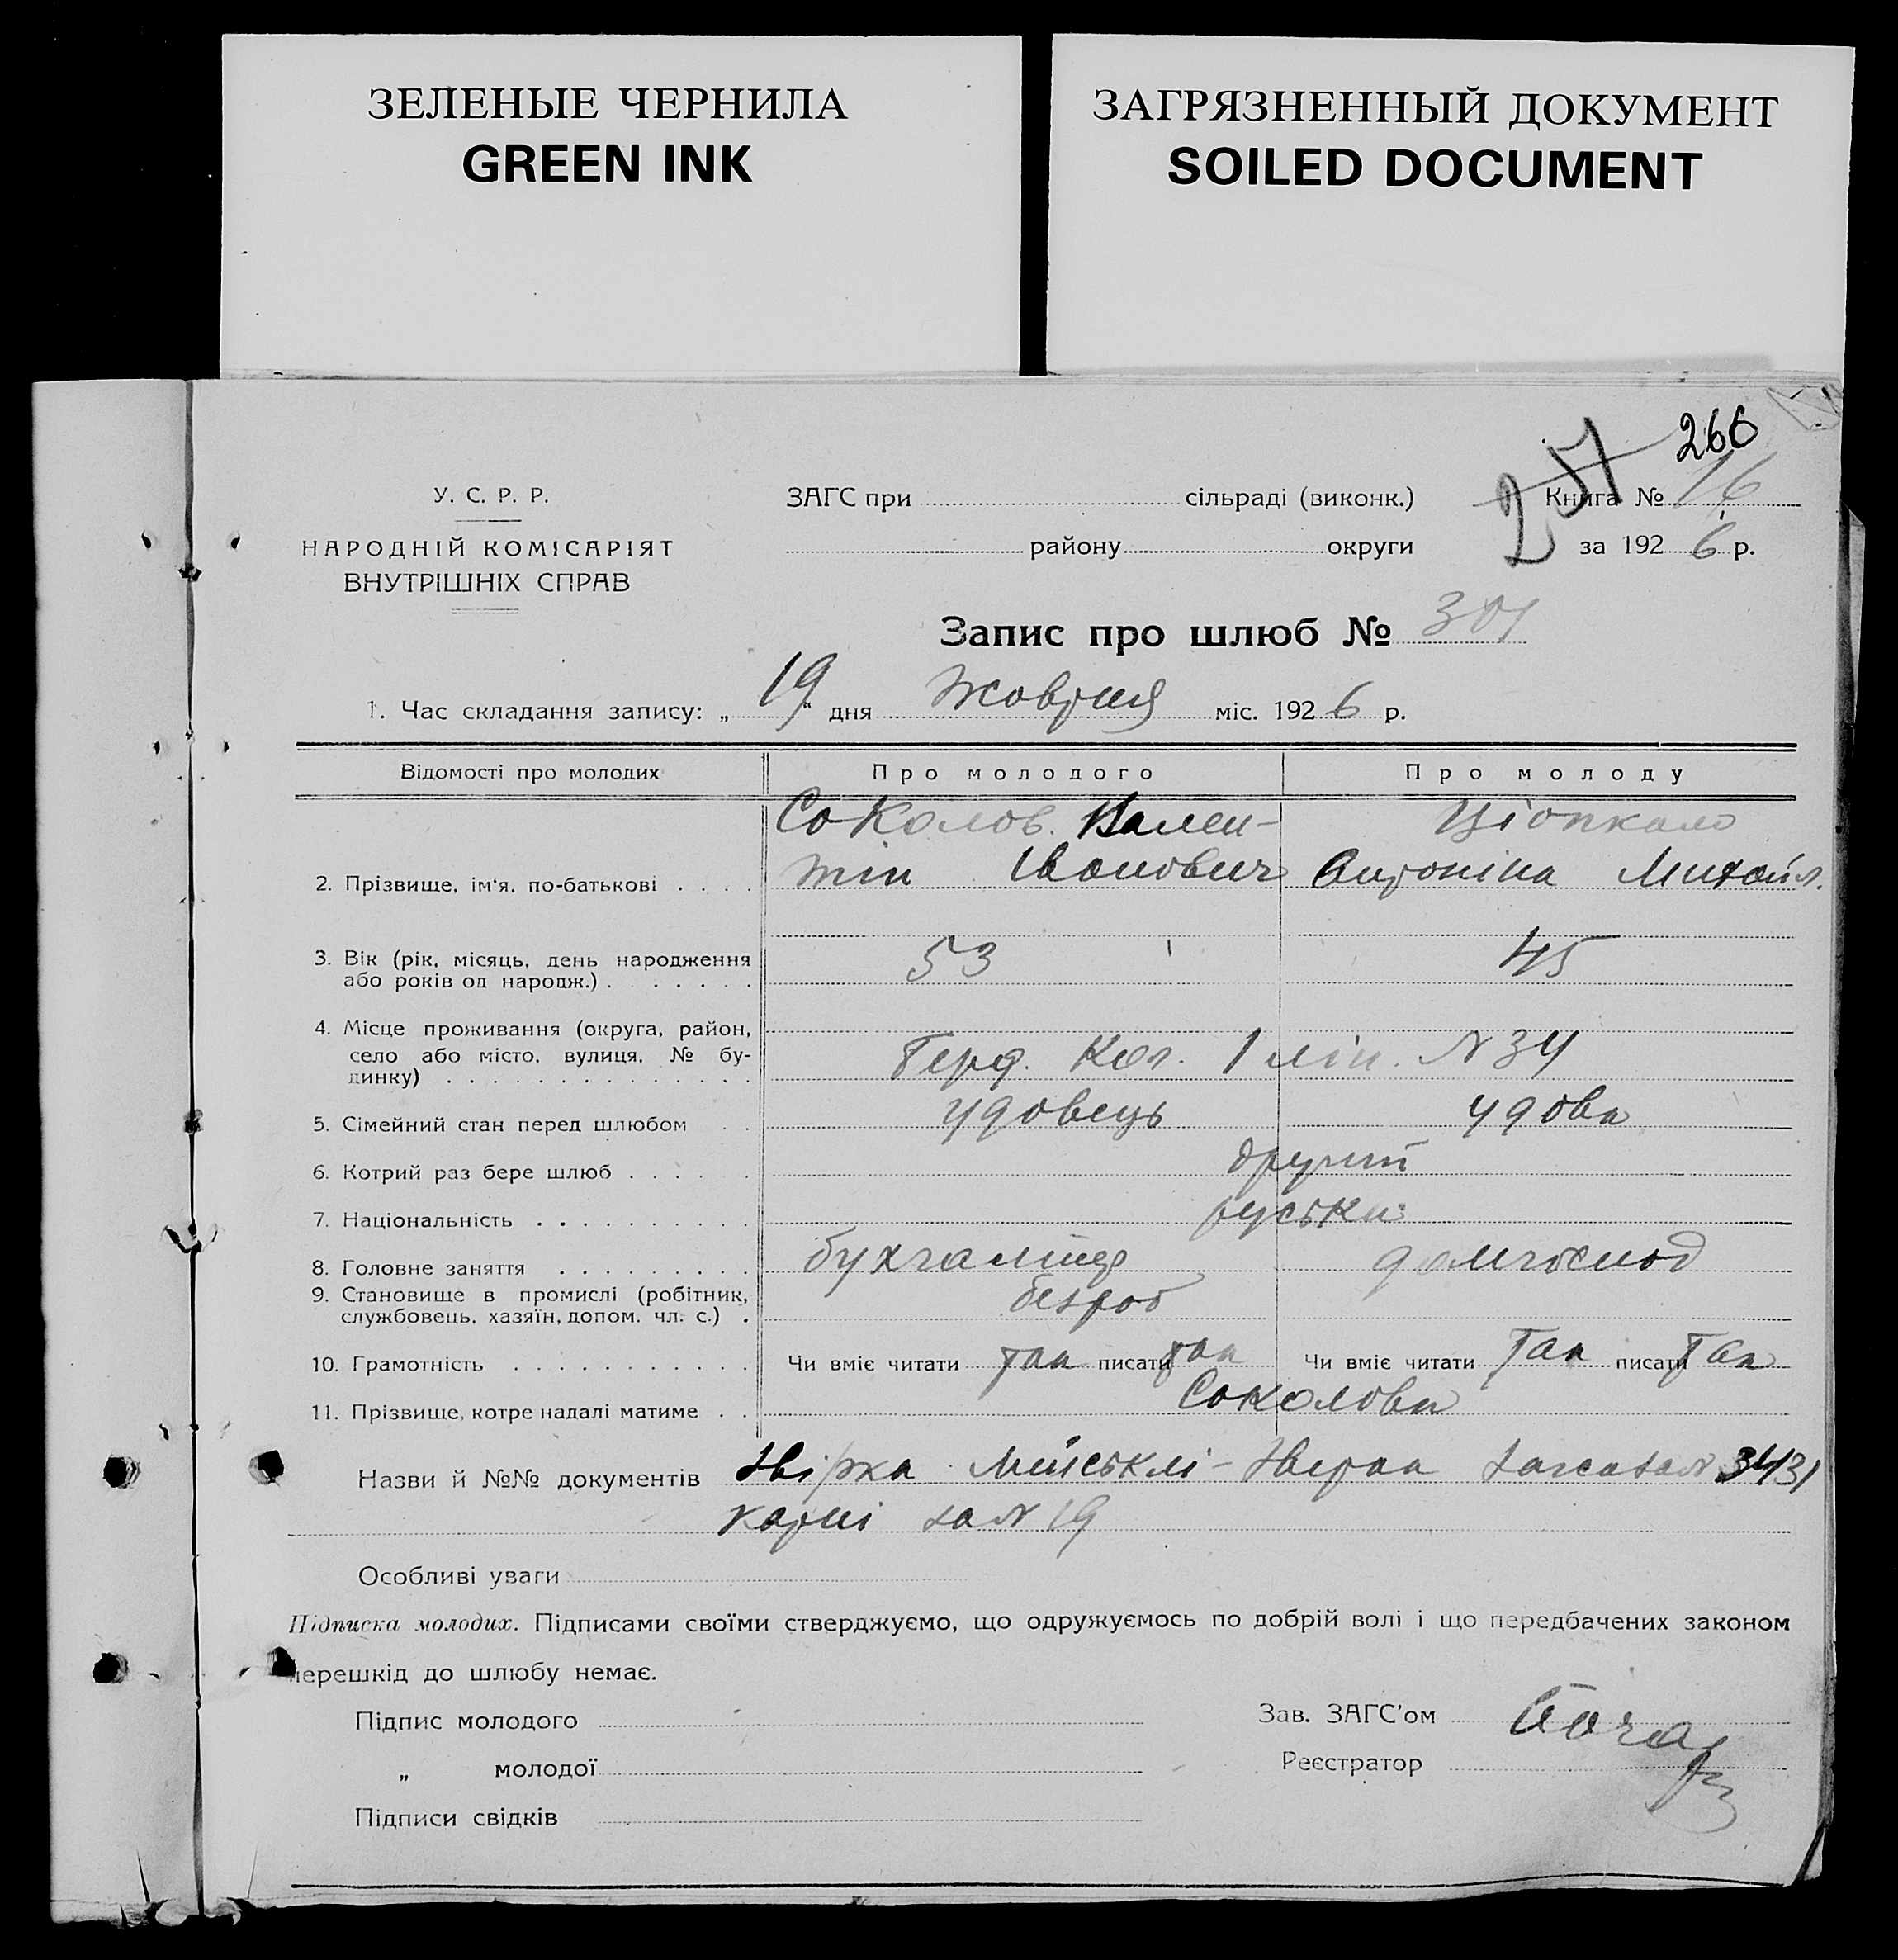 ЗЕЛЕНЫЕ ЧЕРНИЛА
GREEN INK
ЗАГРЯЗНЕННЫЙ ДОКУМЕНТ
SOILED DOCUMENT
266
257
У. С. Р. Р.
НАРОДНІЙ КОМІСАРІЯТ
ВНУТРІШНІХ СПРАВ
ЗАГС при сільраді (виконк.) Книга № 16
району округи за 192 6 р.
Запис про шлюб № 301
1. Час складання запису: „ 19 " дня Жовтня міс. 192 6 р.
Відомості про молодих Про молодого Про молоду
Соколов Вален- Ціопкало
2. Прізвище, ім'я, по-батькові тін Іванович Антоніна Михайл.
3. Вік (рік, місяць, день народження 53 45
або років од народж.)
4. Місце проживання (округа, район,
село або місто, вулиця, № бу- Герд. Кол. 1 лін. N 34
динку)
5. Сімейний стан перед шлюбом удовець удова
6. Котрий раз бере шлюб другий
7. Національність руськи
8. Головне заняття бухгалтер домгоспод
9. Становище в промислі (робітник, безроб
службовець, хазяїн, допом. чл. с.)
10. Грамотність Чи вміє читати так писати так Чи вміє читати так писати так
11. Прізвище, котре надалі матиме Соколови
Назви й №№ документів Звірка Міськлі- Звірка Загса за N 3431
карні за N 19
Особливі уваги
Підписка молодих. Підписами своїми стверджуємо, що одружуємось по добрій волі і що передбачених законом
перешкід до шлюбу немає.
Підпис молодого Зав. ЗАГС'ом
„ молодої Реєстратор
Підписи свідків